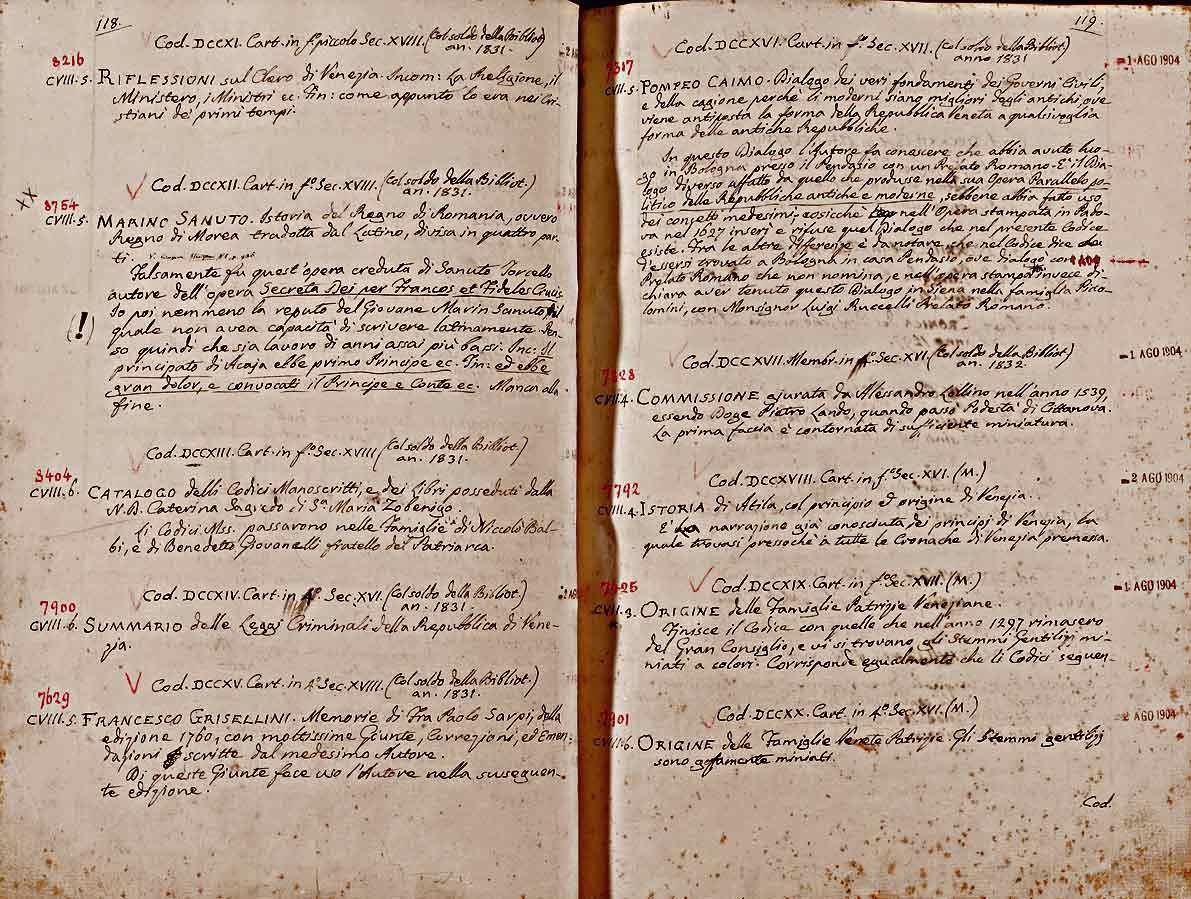 118.
Cod. DCCXI. Cart. in f.º piccolo Sec. XVIII. (Col soldo della Bibliot.)
an. 1831.
8216
CVIII. 5. RIFLESSIONI sul Clero di Venezia. Incom: La Religione, il
Ministero, i Ministri ec. Fin: come appunto lo era nei Cri-
stiani de' primi tempi.
Cod. DCCXII. Cart. in f.º Sec. XVIII. (Col soldo della Bibliot.)
an. 1831.
XX
8754
CVIII. 5. MARINO SANUTO. Istoria del Regno di Romania, ovvero
Regno di Morea tradotta dal Latino, divisa in quattro par-
ti.
Falsamente fu quest'opera creduta di Sanuto Torcello
autore dell'opera Secreta Dei per Francos et Fideles Crucis
Io poi nemmeno la reputo del Giovane Marin Sanuto, il
(!) quale non avea capacità di scrivere latinamente. Pen-
so quindi che sia lavoro di anni assai più bassi. Inc: Il
principato di Acaja ebbe primo Principe ec. Fin: ed ebbe
gran dolor, e convocati il Principe e Conte ec. Manca alla
fine.
Cod. DCCXIII. Cart. in f.º Sec. XVIII (Col soldo della Bibliot.)
an. 1831.
8404
CVIII. 6. CATALOGO delli Codici Manoscritti, e dei Libri posseduti dalla
N. D. Caterina Sagredo di S.ª Maria Zobenigo.
Li Codici Mss. passarono nelle Famiglie di Niccolò Bal-
bi, e di Benedetto Giovanelli fratello del Patriarca.
Cod. DCCXIV. Cart. in 4º. Sec. XVI. (Col soldo della Bibliot.)
an. 1831.
7900
CVIII. 6. SUMMARIO delle Leggi Criminali della Repubblica di Vene-
zia.
Cod. DCCXV. Cart. in 4º. Sec. XVIII. (Col soldo della Bibliot.)
an. 1831.
7629
CVIII. 5. FRANCESCO GRISELLINI. Memorie di Fra Paolo Sarpi, della
edizione 1760, con moltissime Giunte, Correzioni, ed Emen-
dazioni scritte dal medesimo Autore.
Di queste Giunte fece uso l'Autore nella susseguen-
te edizione.
119.
Cod. DCCXVI. Cart. in f.º Sec. XVII. (Col soldo della Bibliot.)
anno 1831
1 AGO 1904
CVII. 5. POMPEO CAIMO. Dialogo dei veri fondamenti dei Governi Civili,
e della cagione perchè li moderni siano migliori degli antichi, ove
viene antiposta la forma della Repubblica Veneta a qualsivoglia
forma delle antiche Repubbliche.
In questo Dialogo l'Autore fa conoscere che abbia avuto luo-
go in Bologna presso il Pendasio con un Prelato Romano. E' il Dia-
logo diverso affatto da quello che produse nella sua Opera Parallelo po-
litico delle Repubbliche antiche e moderne, sebbene abbia fatto uso
dei concetti medesimi; cosicchè nell'Opera stampata in Pado-
va nel 1627 inserì e rifuse quel Dialogo che nel presente Codice
esiste. Fra le altre differenze è da notare che nel Codice dice
d'essersi trovato a Bologna in casa Pendasio, ove dialogò con
Prelato Romano che non nomina, e nell'opera stampata invece di-
chiara aver tenuto questo Dialogo in Siena nella famiglia Pico-
lomini, con Monsignor Luigi Ruccelli Prelato Romano.
Cod. DCCXVII. Membr. in 4º. Sec. XVI. (Col soldo della Bibliot.)
an. 1832.
1 AGO 1904
CVII. 4. COMMISSIONE giurata da Alessandro Lollino nell'anno 1539,
essendo Doge Pietro Lando, quando passò Podestà di Cittanova.
La prima faccia è contornata di sufficiente miniatura.
Cod. DCCXVIII. Cart. in f.º Sec. XVI. (M.)
2 AGO 1904
7792
CVIII. 4. ISTORIA di Atila, col principio ed origine di Venezia.
E' la narrazione già conosciuta dei principj di Venezia, la
quale trovasi pressochè a tutte le Cronache di Venezia premessa.
Cod. DCCXIX. Cart. in f.º Sec. XVII. (M.)
1 AGO 1904
CVIII. 3. ORIGINE delle Famiglie Patrizie Veneziane.
Finisce il Codice con quelle che nell'anno 1297 rimasero
del Gran Consiglio, e vi si trovano gli Stemmi Gentilizj mi-
niati a colori. Corrisponde egualmente che li Codici seguen-
Cod. DCCXX. Cart. in 4º. Sec. XVI. (M.)
2 AGO 1904
7901
CVIII. 6. ORIGINE delle Famiglie Venete Patrizie. Gli Stemmi gentilizj
sono goffamente miniati.
Cod.